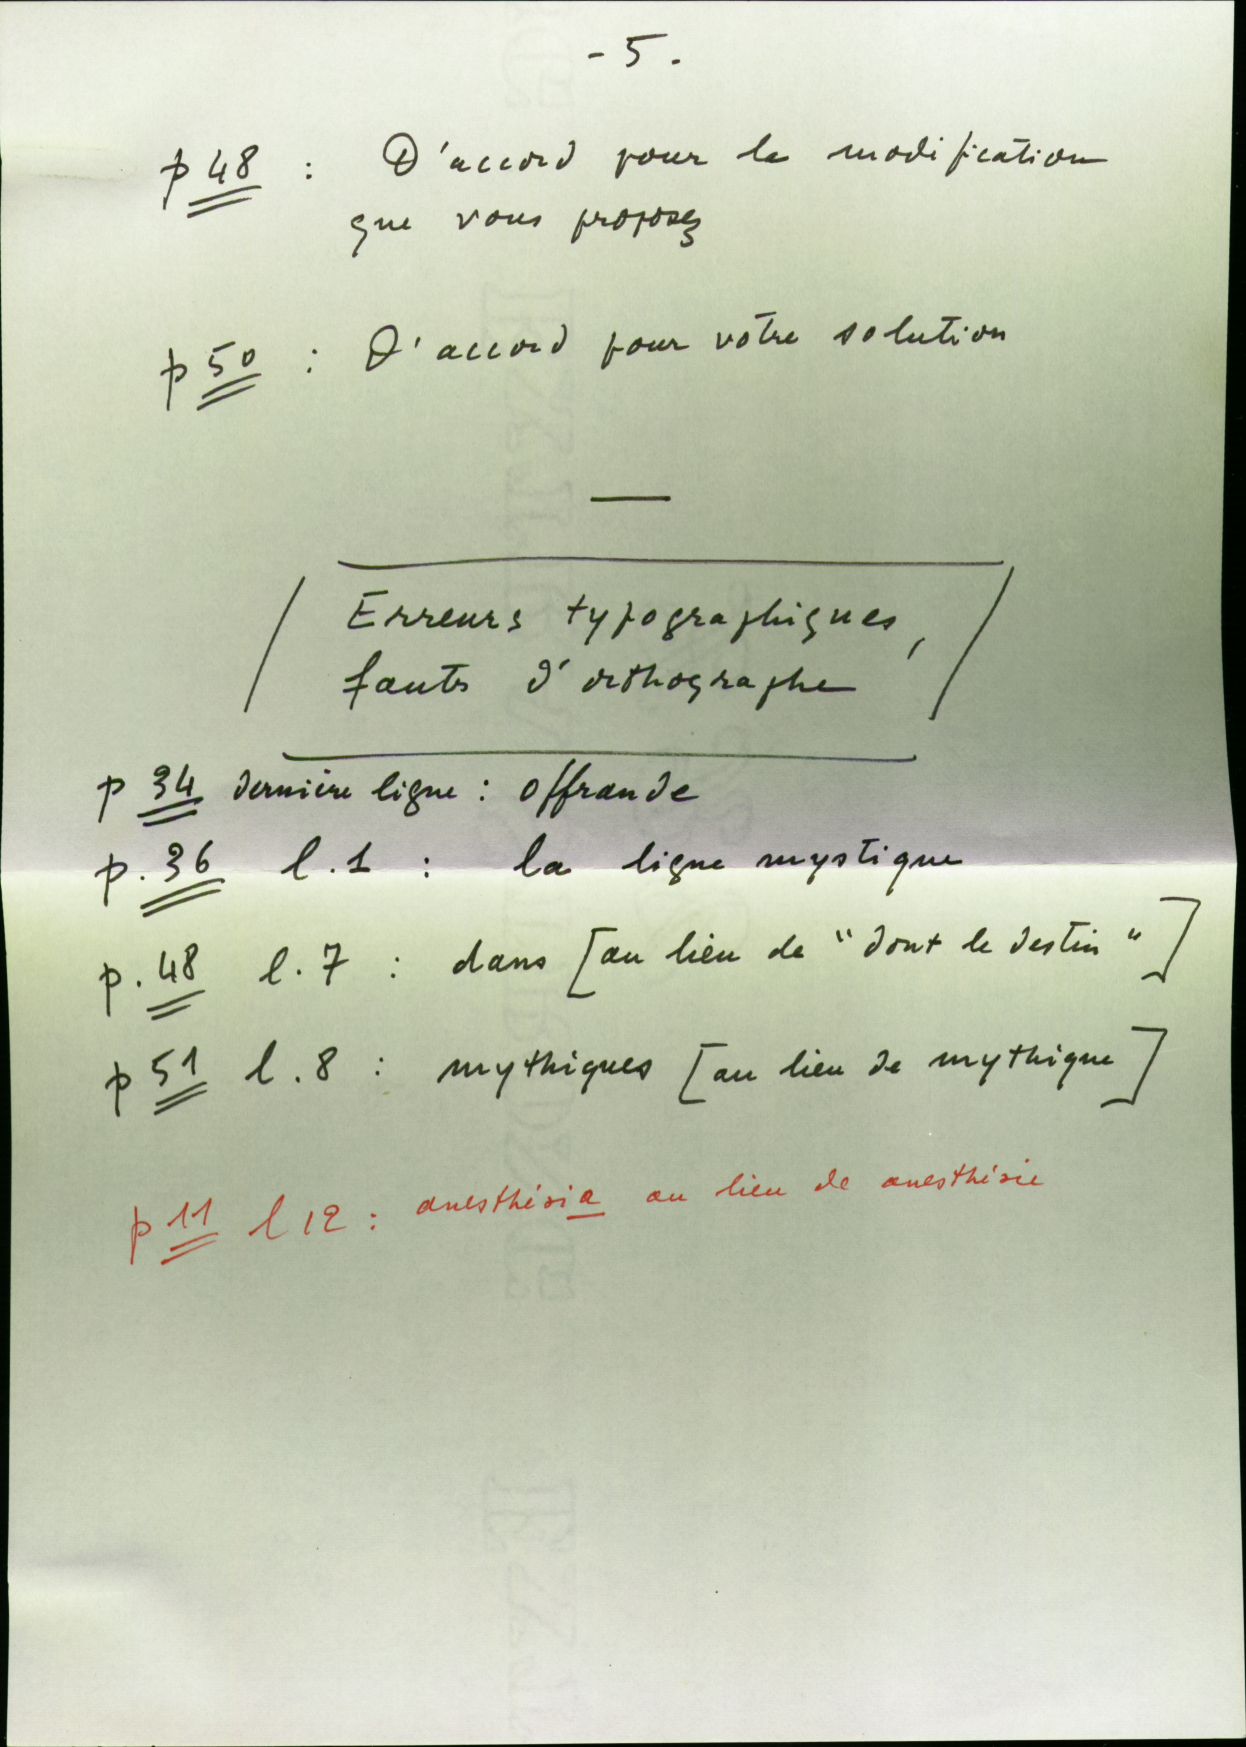 - 5 .
p 48 : D'accord pour la modification
que vous proposez
p 50 : D'accord pour votre solution
Erreurs typographiques,
fautes d'orthographe
p 34 dernière ligne : offrande
p. 36 l. 1 : la ligne mystique
p. 48 l. 7 : dans [au lieu de "dont le destin"]
p 51 l. 8 : mythiques [au lieu de mythique]
p 11 l 12 : anesthésia au lieu de anesthésie